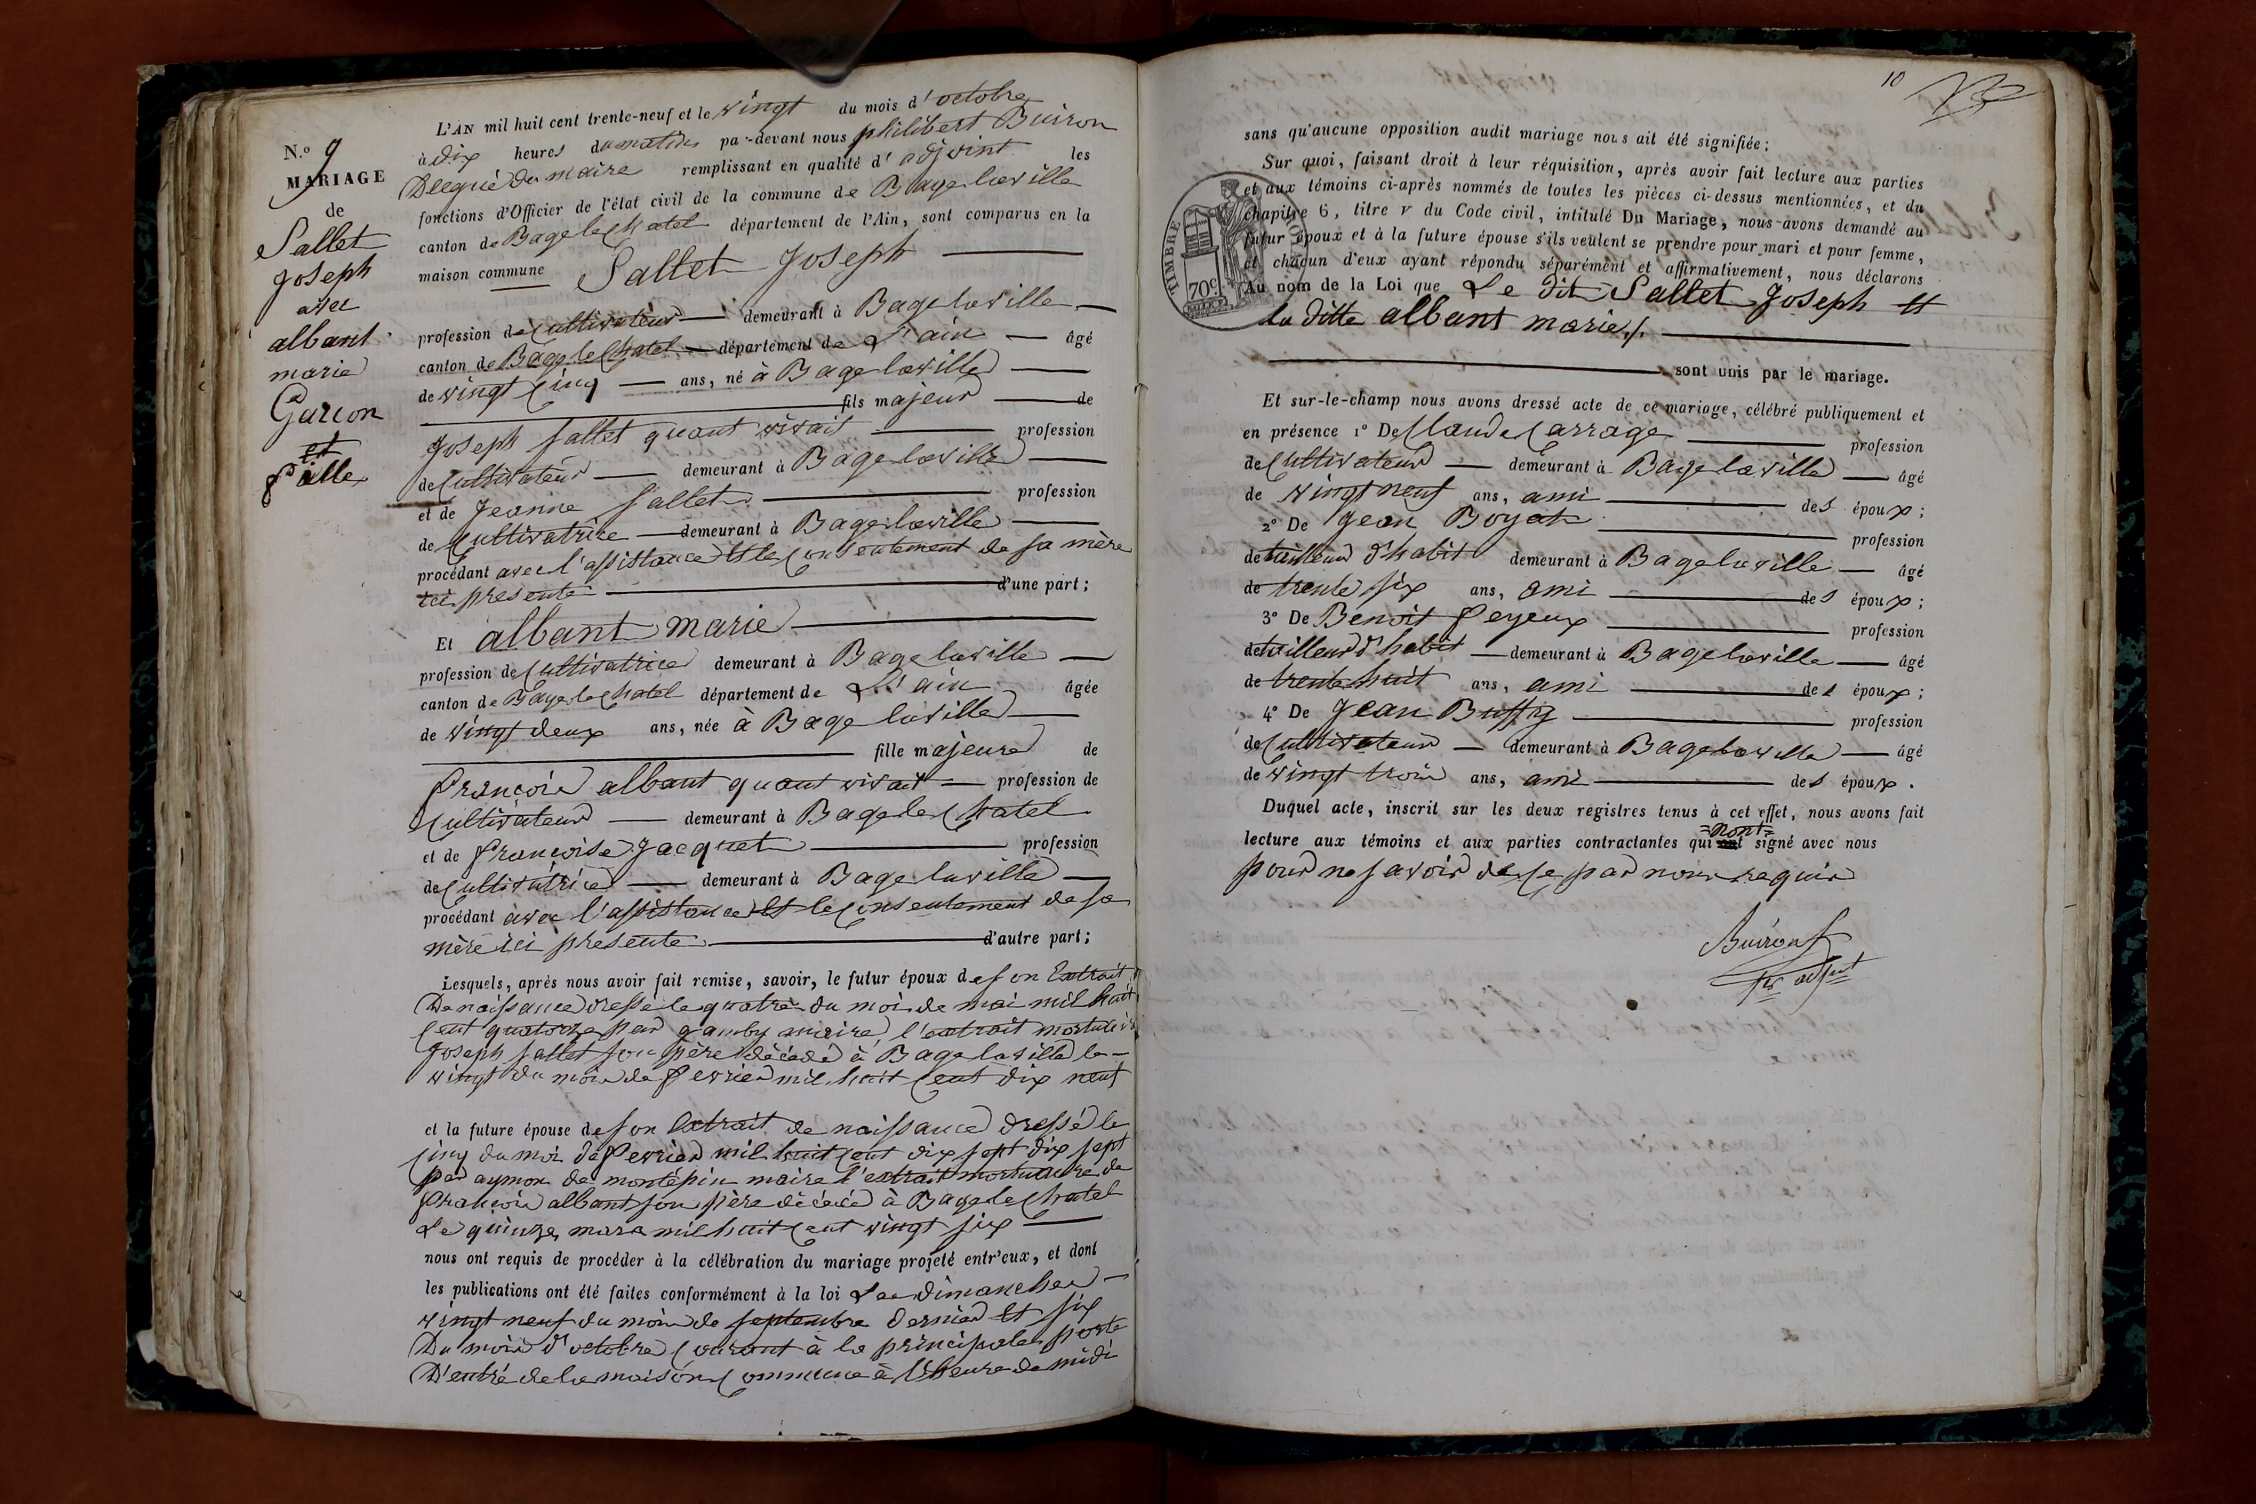 N.° 9
MARIAGE
de
Sallet
Joseph
avec
albant
marie
Garcon
et
fille
L'AN mil huit cent trente-neuf et le vingt du mois d'octobre
à dix heures du matin par-devant nous philibert Buiron
Delegué du maire remplissant en qualité d'adjoint les
fonctions d'Officier de l'état civil de la commune de Bagelaville
canton de Bagelechatel département de l'Ain, sont comparus en la
maison commune Sallet Joseph
profession de Cultivateur demeurant à Bagelaville
canton de Bagelechatel département de L'ain âgé
de vingt Cinq ans, né à Bagelaville
fils majeur de
Joseph Sallet quant vivait profession
de Cultivateur demeurant à Bagelaville
et de Jeanne Sallet profession
de Cultivatrice demeurant à Bagelaville
procédant avec l'assistance et le Consentement de sa mère
ici presente d'une part;
Et albant marie
profession de Cultivatrice demeurant à Bagelaville
canton de Bagelechatel département de L'ain âgée
de vingt deux ans, née à Bagelaville
fille majeure de
francois albant quant vivait profession de
Cultivateur demeurant à Bagelechatel
et de francoise Jacquet profession
de Cultivatrice demeurant à Bagelaville
procédant avec l'assistance et le Consentement de sa
mère ici presente d'autre part;
Lesquels, après nous avoir fait remise, savoir, le futur époux de son Extrait
De naissance dressé le quatre du mois de mai mil huit
Cent quatorze par gamby maire, l'extrait mortuaire
Joseph Sallet son père décédé à Bagelaville le
vingt du mois de fevrier mil huit Cent dix neuf
et la future épouse de son Extrait de naissance dressé le
Cinq du mois de fevrier mil huit Cent dix sept dix sept
par aymon de montépin maire l'extrait mortuaire de
francois albant son père décédé à Bagelechatel
Le quinze mars mil huit Cent vingt six
nous ont requis de procéder à la célébration du mariage projeté entr'eux, et dont
les publications ont été faites conformément à la loi Les dimanches
vingt neuf du mois de septembre dernier et six
Du mois d'octobre Courant à la principale porte
D'entré de la maison Commune à l'heure de midi
10
sans qu'aucune opposition audit mariage nous ait été signifiée;
Sur quoi, faisant droit à leur réquisition, après avoir fait lecture aux parties
et aux témoins ci-après nommés de toutes les pièces ci-dessus mentionnées, et du
chapitre 6, titre v du Code civil, intitulé Du Mariage, nous avons demandé au
futur époux et à la future épouse s'ils veulent se prendre pour mari et pour femme,
et chacun d'eux ayant répondu séparément et affirmativement, nous déclarons
Au nom de la Loi que Le dit Sallet Joseph et
TIMBRE
70c
la ditte albant marie
sont unis par le mariage.
Et sur-le-champ nous avons dressé acte de ce mariage, célébré publiquement et
en présence 1° De Claude Carrage profession
de Cultivateur demeurant à Bagelaville âgé
de vingt neuf ans, ami des époux;
2° De Jean Boyat profession
de tailleur d'habit demeurant à Bagelaville âgé
de trente six ans, ami des époux;
3° De Benoit feyeux profession
de tailleur d'habit demeurant à Bagelaville âgé
de trente huit ans, ami des époux;
4° De Jean Buffy profession
de Cultivateur demeurant à Bagelaville âgé
de vingt trois ans, ami des époux.
Duquel acte, inscrit sur les deux registres tenus à cet effet, nous avons fait
=nont=
lecture aux témoins et aux parties contractantes qui ont signé avec nous
pour ne savoir de ce par nous requis
Buiron
adjoint